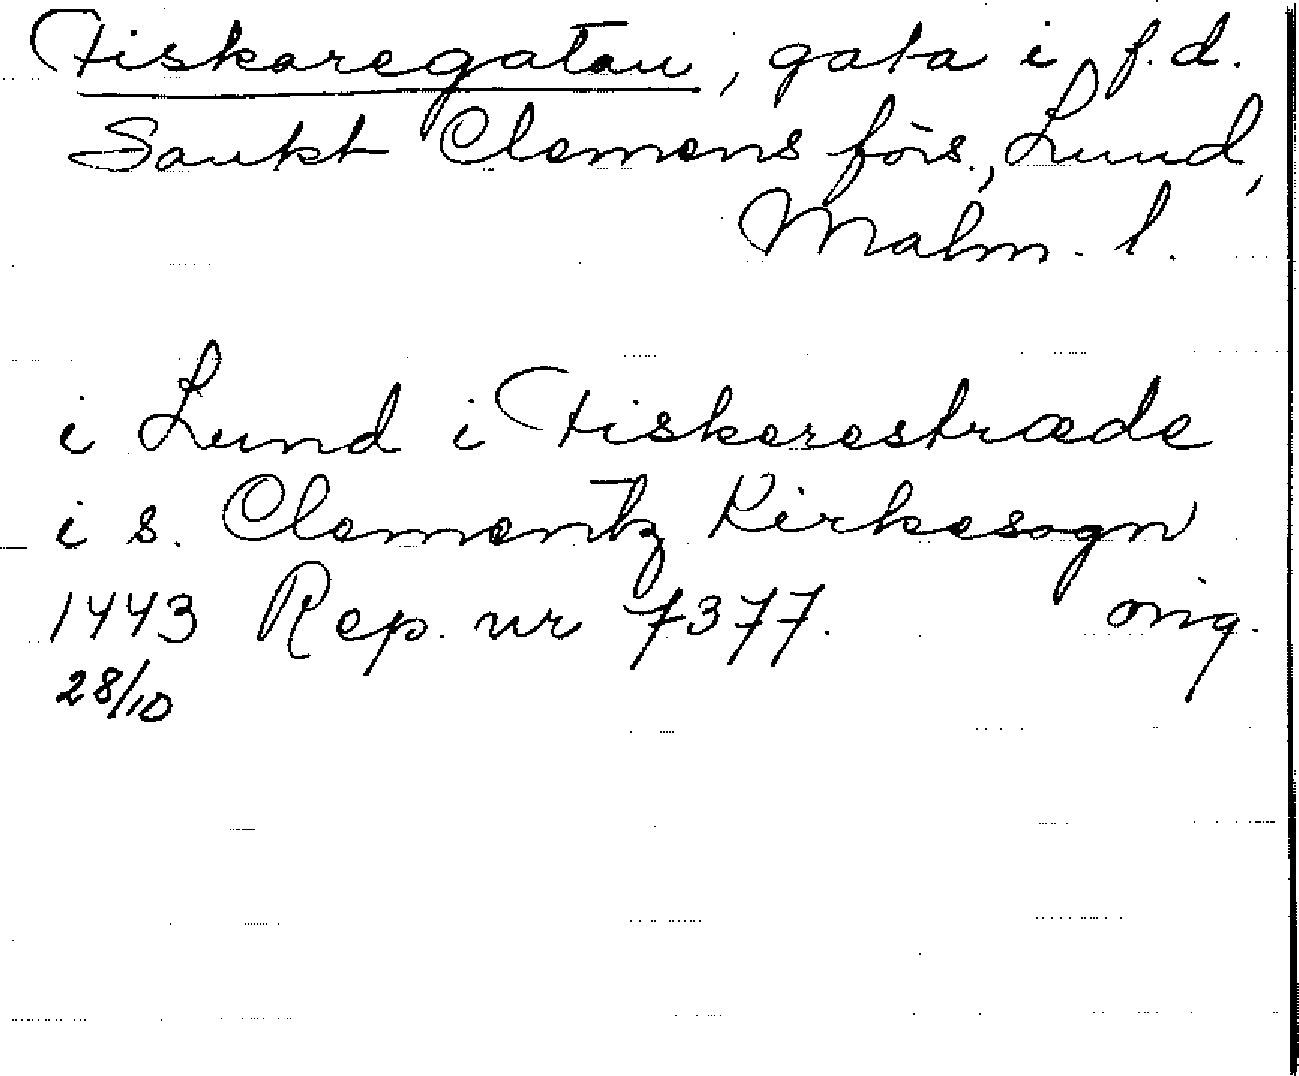 Fiskaregatan, gata i f.d.
Sankt Clemens förs., Lund,
Malm. l.
i Lund i Fiskerestræde
i s. Clementz Kirkesogn
1443 Rep. nr 7377. orig.
28/10